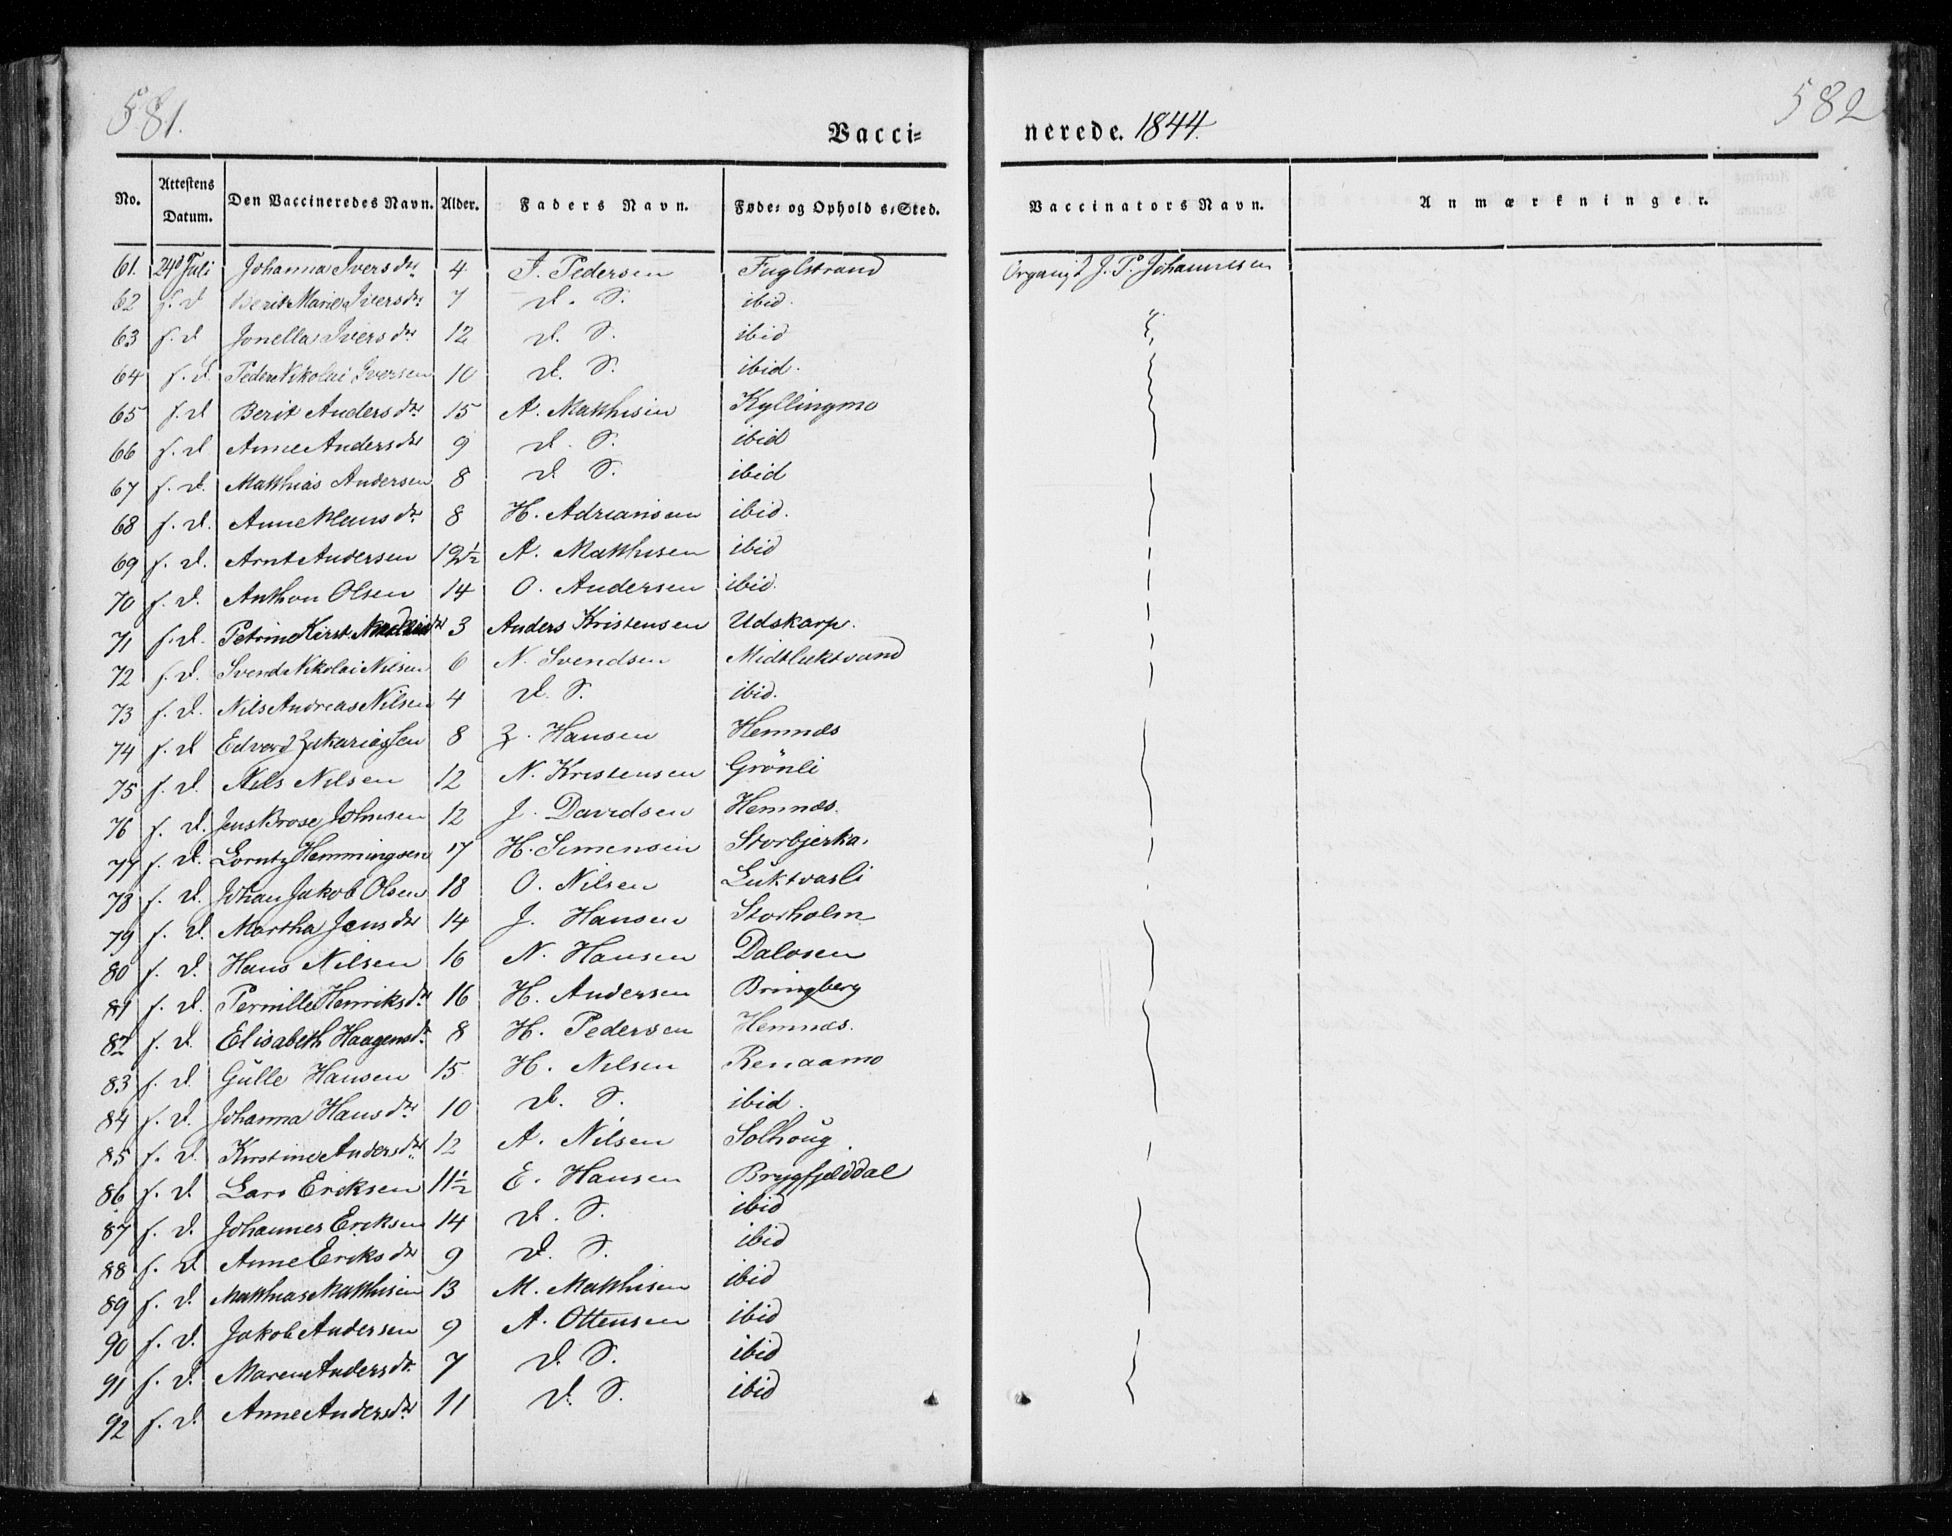 581.
582
Vacci=
nerede. 1844.
No. Attestens Datum. Den Vaccineredes Navn. Alder. Faders Navn. Føde= og Opholds=Sted. Vaccinators Navn. Anmærkninger.
61. 24d Juli Johanna Iversdtr 4 I. Pedersen Fuglstrand Organist J. P. Johannesen
62 f. d Berit Marie Iversdtr 7 d. S. ibid.
63 f. d Jonella Iversdtr 12 d. S. ibid
64 f. d. Peder Nikolai Iversen 10 d. S. ibid.
65 f. d Berit Andersdtr 15 A. Matthisen Kyllingmo
66 f. d Anne Andersdtr 9 d. S. ibid
67 f. d. Matthias Andersen 8 d. S. ibid
68 f. d. Anne Hansdtr 8 H. Adriansen ibid.
69 f. d. Arnt Andersen 12½ A. Matthisen ibid
70 f. d. Anthon Olsen 14 O. Andersen ibid.
71 f. d. Petrine Kirst. dtr 3 Anders Kristensen Udskarp.
72 f. d. Svend Nikolai Nilsen 6 N. Svendsen Midtluktvand
73 f. d. Nils Andreas Nilsen 4 d. S. ibid.
74 f. d Edvard Zakariassen 8 Z. Hansen Hemnæs
75 f. d. Nils Nilsen 12 N. Kristensen Grönli
76 f. d. Jens Brose Johnsen 12 J. Davidsen Hemnæs.
77 f. d. Lorntz Hemmingsen 17 H. Simensen Storbjerka.
78 f. d. Johan Jakob Olsen 18 O. Nilsen Luktvasli
79 f. d. Martha Jensdtr 14 J. Hansen Storholm
80 f. d. Hans Nilsen 16 N. Hansen Dalosen
81 f. d. Pernille Henriksdtr 16 H. Andersen Bringberg
82 f. d. Elisabeth Haagensdr. 8 H. Pedersen Hemnæs.
83 f. d. Gulle Hansen 15 H. Nilsen Renaamo
84 f. d. Johanna Hansdtr 10 d. S. ibid.
85 f. d. Kirstine Andersdtr 12 A. Nilsen Solhoug.
86 f. d. Lars Eriksen 11½ E. Hansen Brygfjelddal
87 f. d. Johannes Eriksen 14 d. S. ibid
88 f. d. Anne Eriksdtr 9 d. S. ibid
89 f. d. Matthias Matthisen 13 M. Matthisen ibid
90 f. d. Jakob Andersen 9 A. Ottensen ibid
91 f. d. Maren Andersdr. 7 d. S. ibid
92 f. d. Anne Andersdtr 11 d. S. ibid